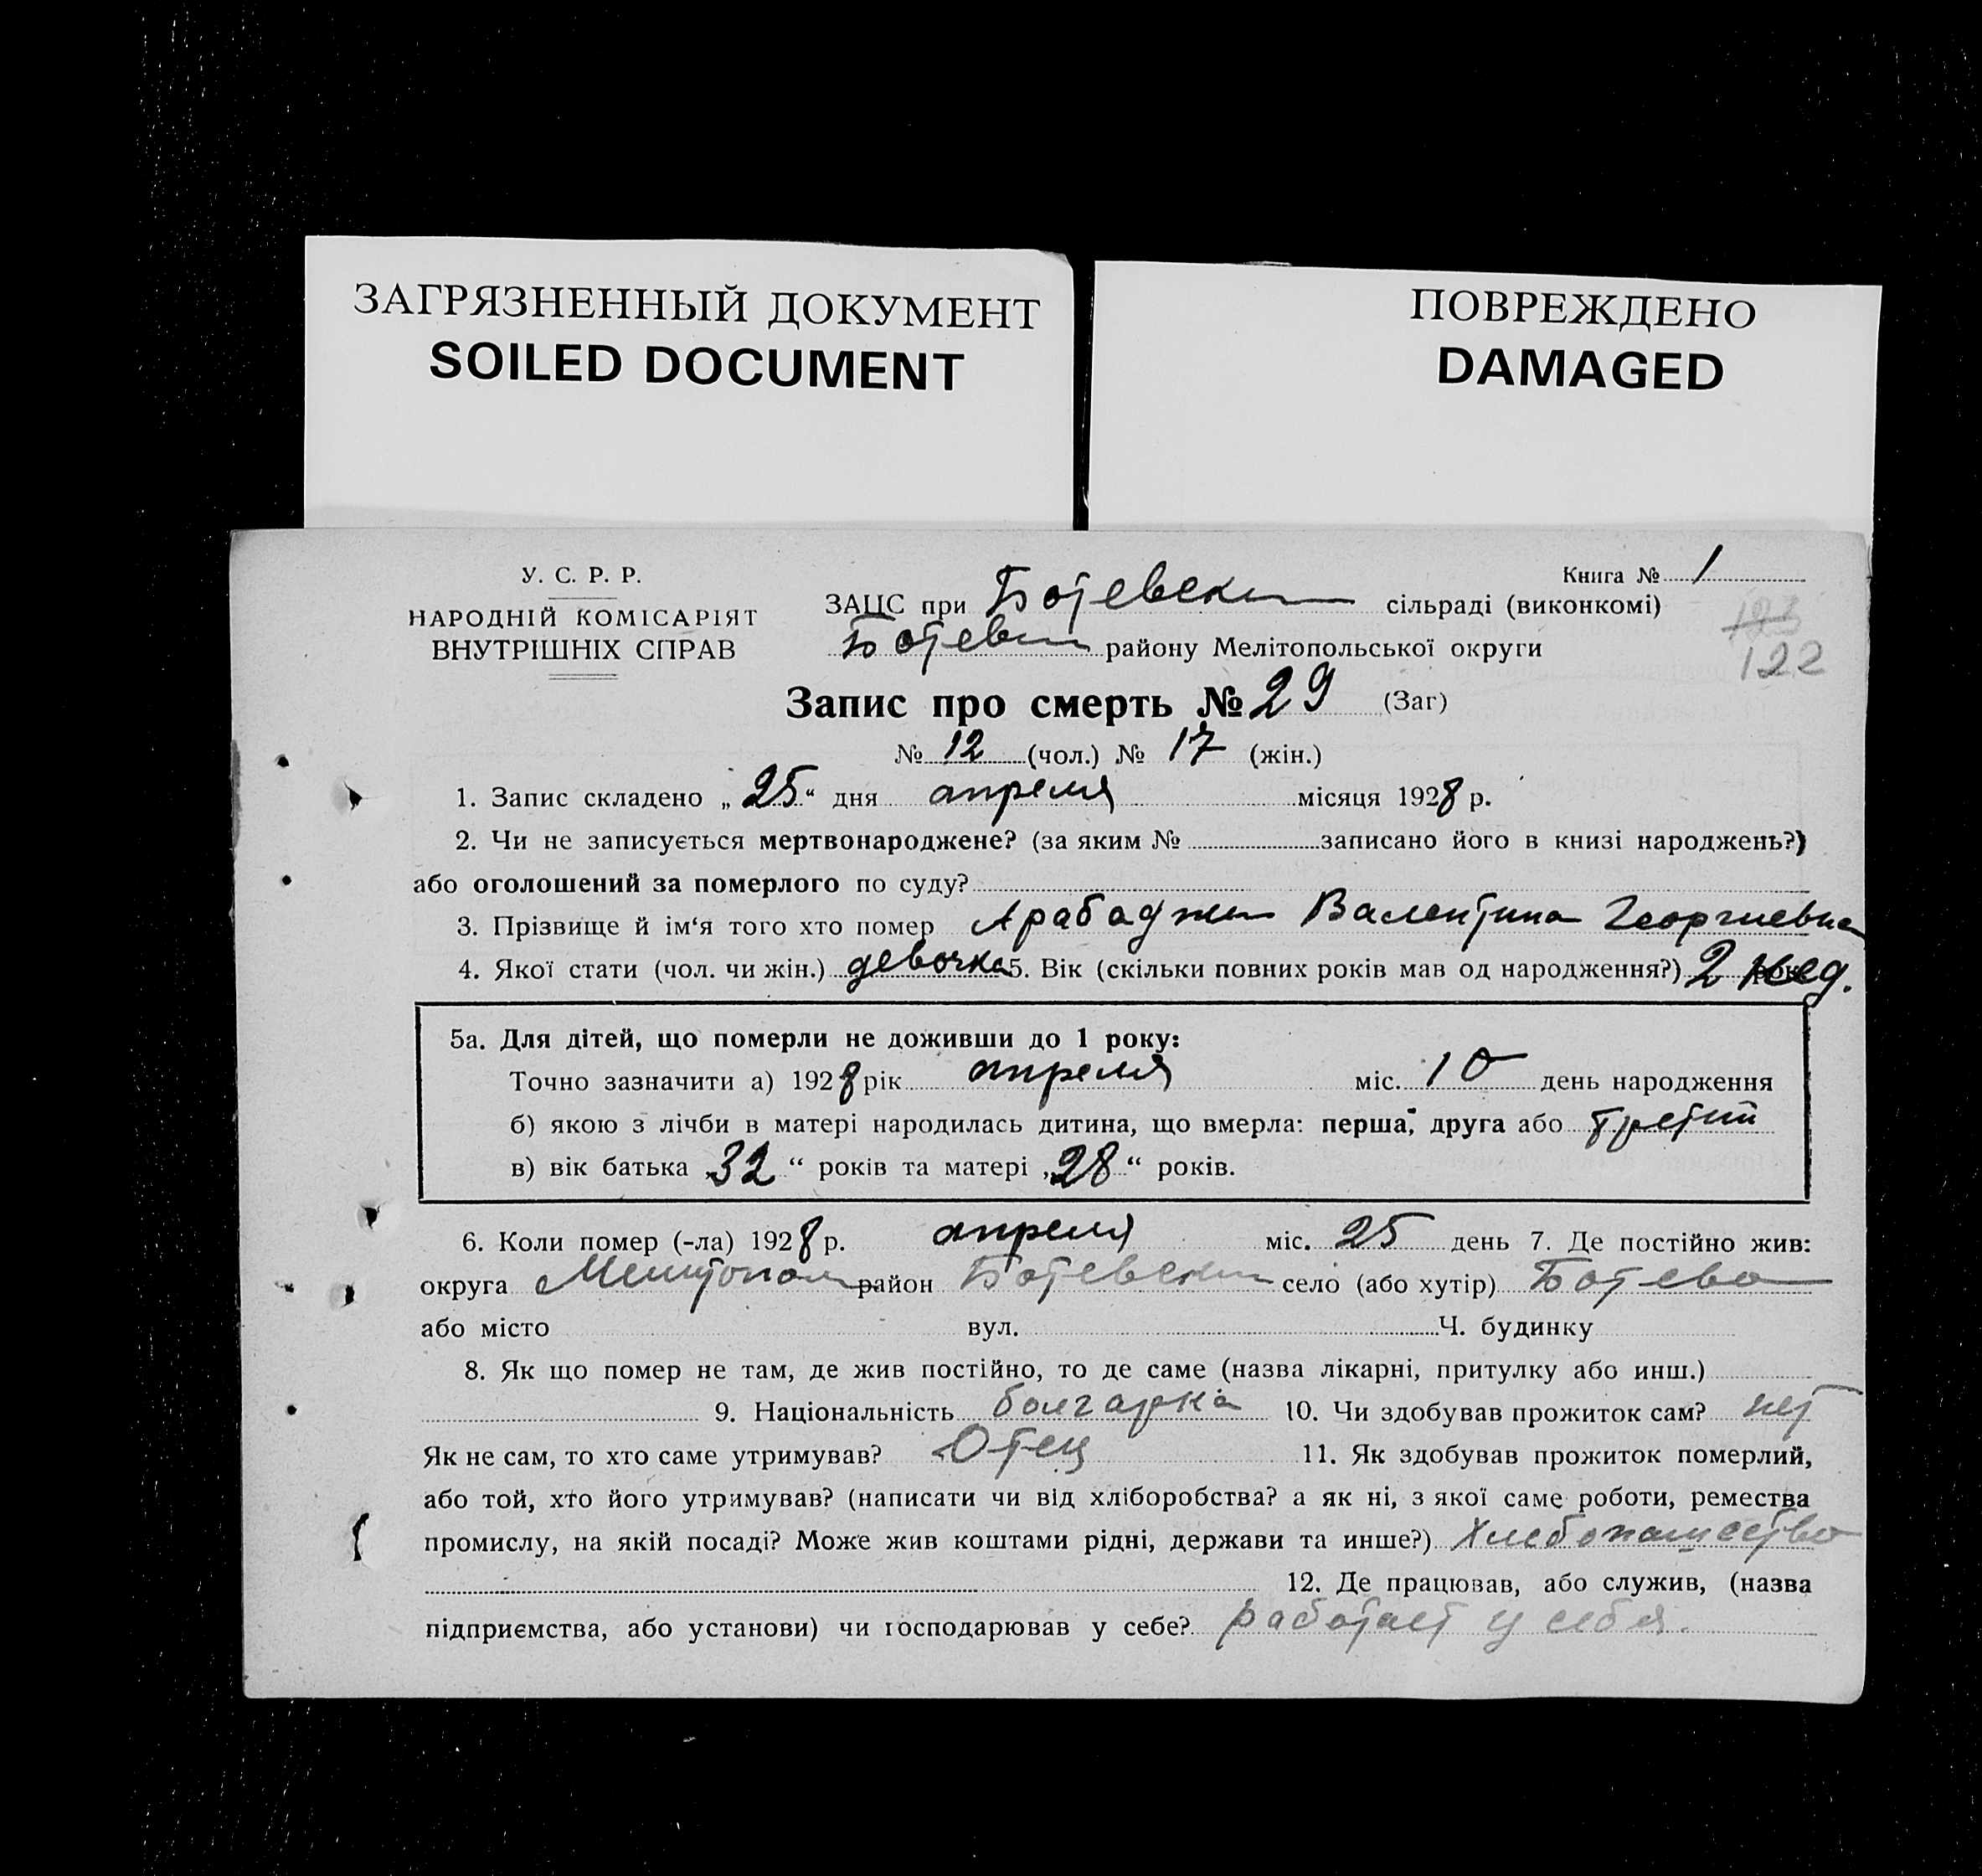 ЗАГРЯЗНЕННЫЙ ДОКУМЕНТ
SOILED DOCUMENT
ПОВРЕЖДЕНО
DAMAGED
У. С. Р. Р.
НАРОДНІЙ КОМІСАРІЯТ
ВНУТРІШНІХ СПРАВ
Книга № 1
ЗАЦС при Ботевском сільраді (виконкомі)
123
Ботевск району Мелітопольської округи
122
Запис про смерть № 29 (Заг)
№ 12 (чол.) № 17 (жін.)
1. Запис складено „ 25 “ дня апреля місяця 1928 р.
2. Чи не записується мертвонароджене? (за яким № записано його в книзі народжень?)
або оголошений за померлого по суду?
3. Прізвище й ім‘я того хто помер Арабаджи Валентина Георгиевна
4. Якої стати (чол. чи жін.) девочка 5. Вік (скільки повних років мав од народження?) 2 нед.
5а. Для дітей, що померли не доживши до 1 року:
Точно зазначити а) 1928 рік апреля міс. 10 день народження
б) якою з лічби в матері народилась дитина, що вмерла: перша, друга або третий
в) вік батька „ 32 “ років та матері „ 28 “ років.
6. Коли помер (-ла) 1928 р. апреля міс. 25 день 7. Де постійно жив:
округа Мелитопол район Ботевский село (або хутір) Ботево
або місто вул. Ч. будинку
8. Як що помер не там, де жив постійно, то де саме (назва лікарні, притулку або инш.)
9. Національність болгарка 10. Чи здобував прожиток сам? нет
Як не сам, то хто саме утримував? Отец 11. Як здобував прожиток померлий,
або той, хто його утримував? (написати чи від хліборобства? а як ні, з якої саме роботи, ремества
промислу, на якій посаді? Може жив коштами рідні, держави та инше?) Хлебопашество
12. Де працював, або служив, (назва
підприємства, або установи) чи господарював у себе? работает у себя.